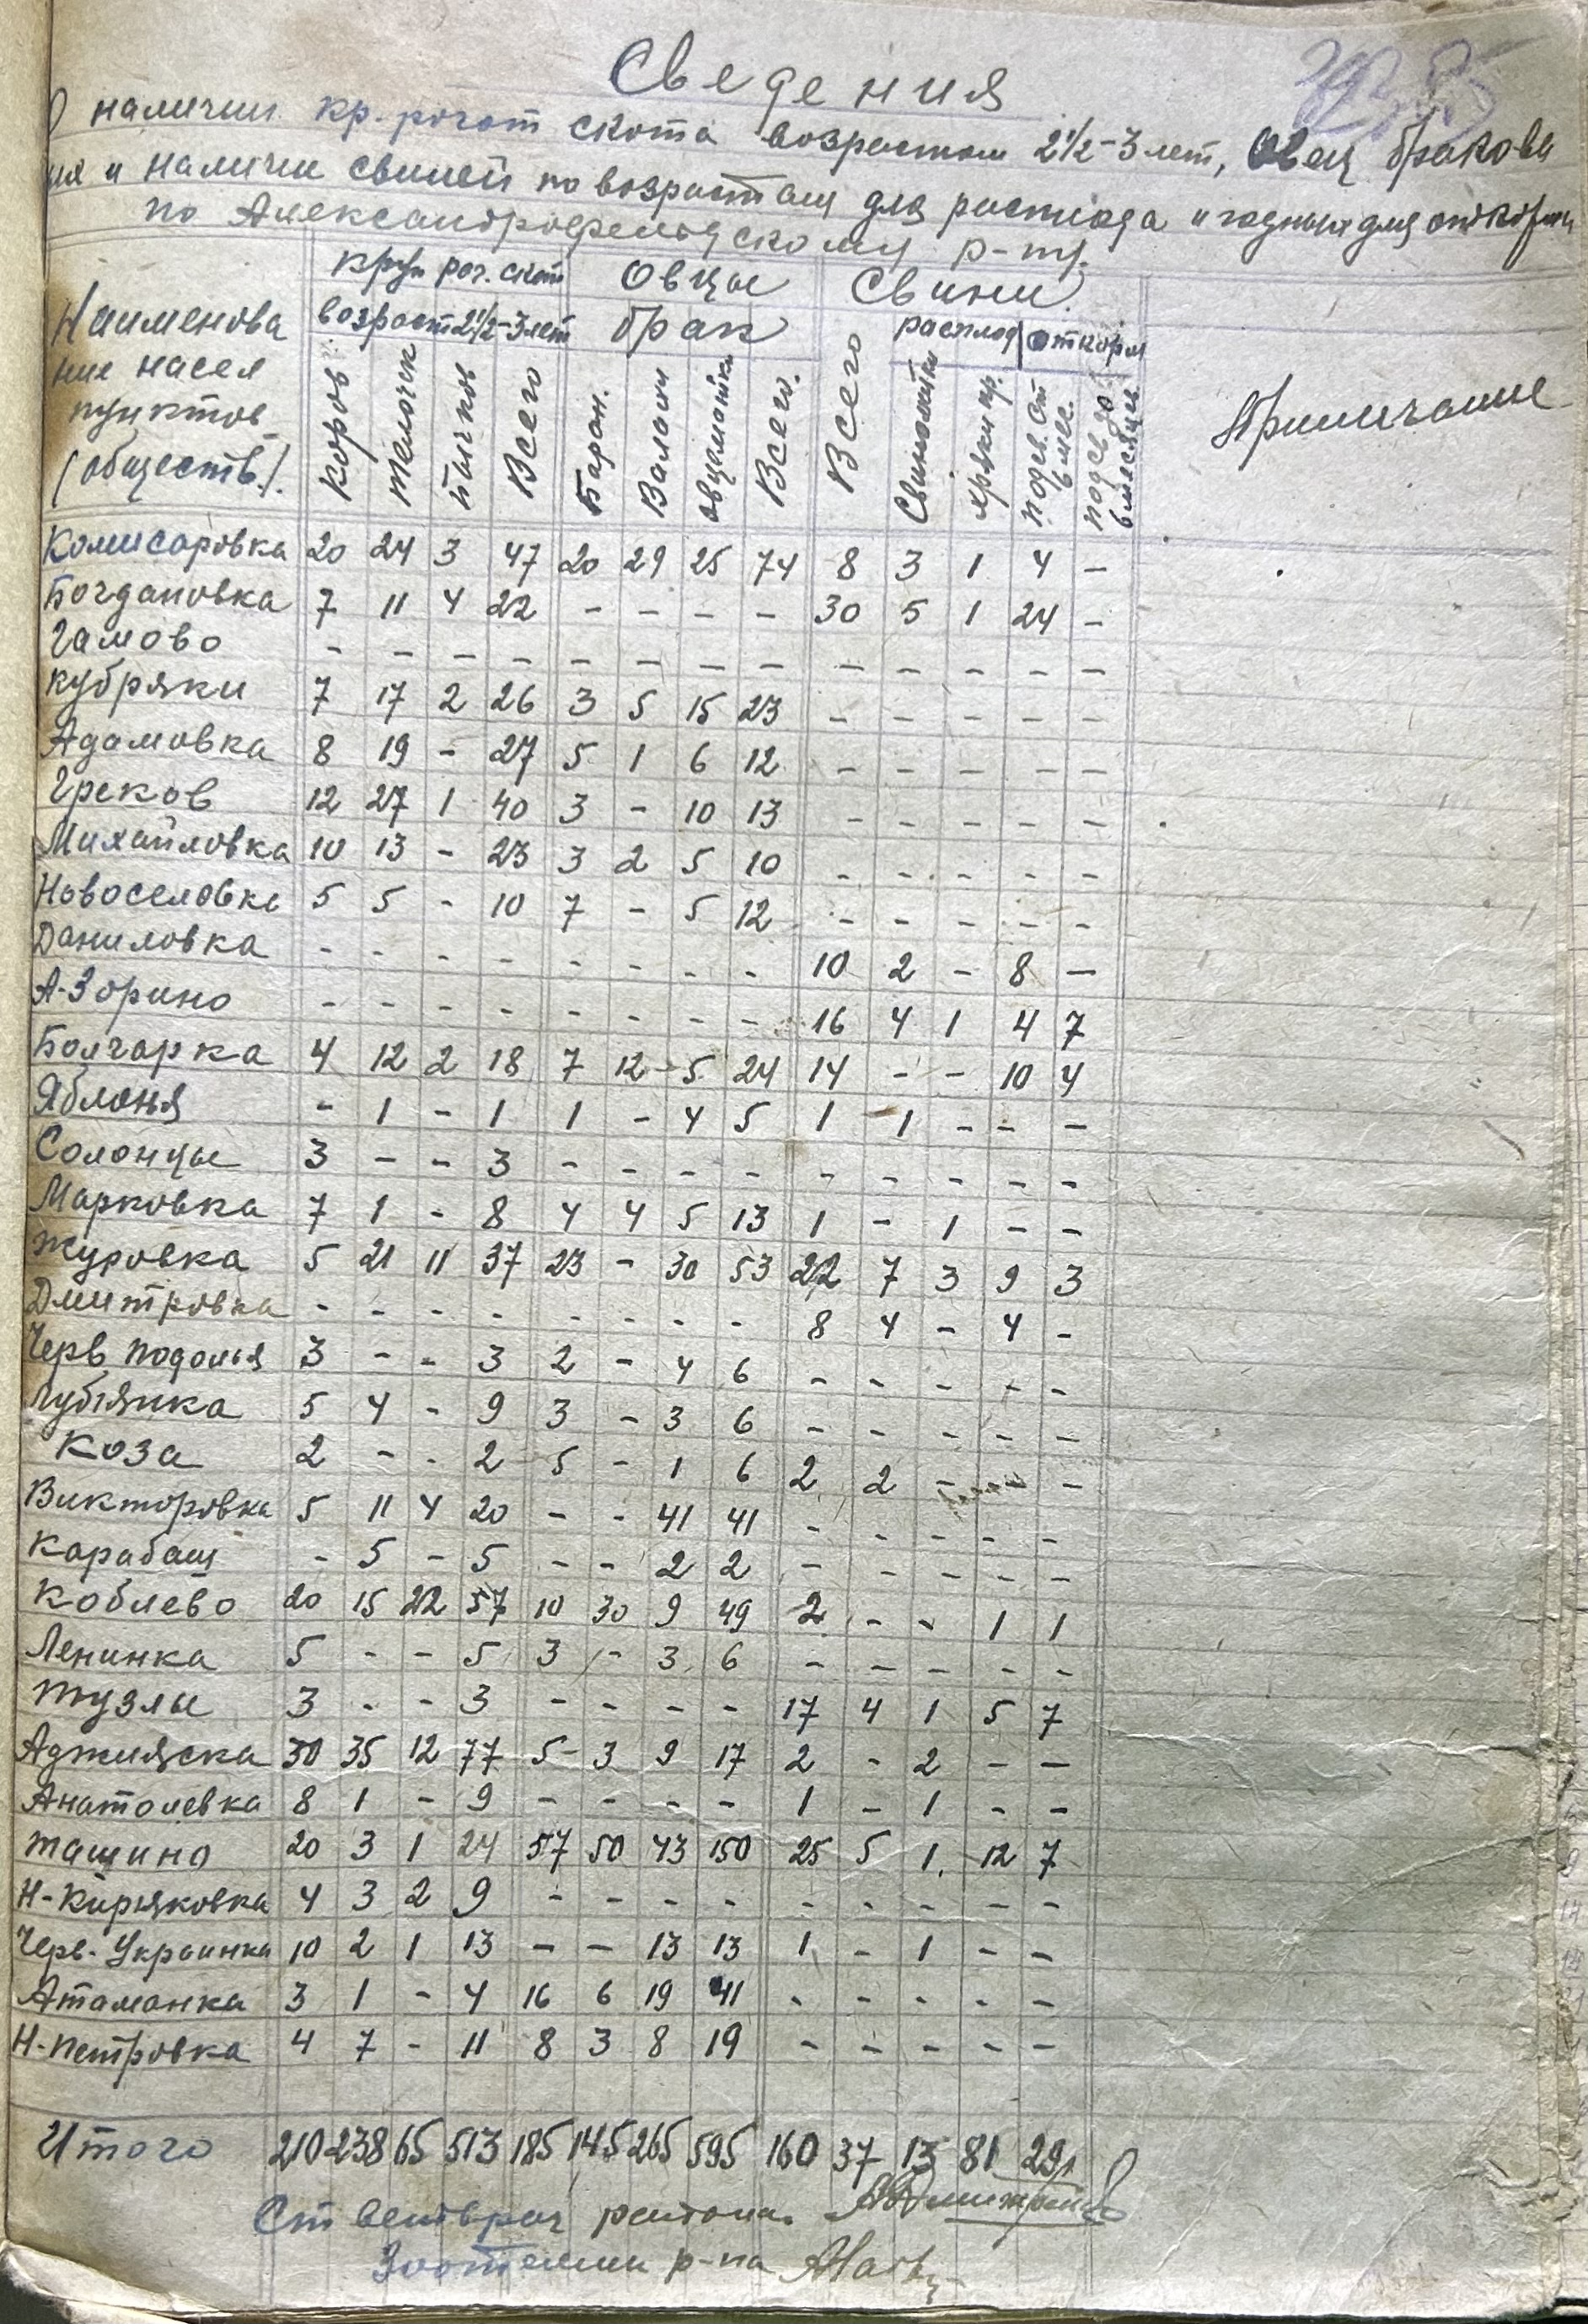 Сведения
О наличии кр. рогат скота возрастом 2½-3 лет, овец бракова
ия и наличии свиней по возрастам для расплода и годных для откорма
по Александрофельдскому р-ну.
Наименова
ние насел
пунктов
(обществ.).
круп рог. скот
возраст 2½-3 лет
Овцы
брак
Свиньи
расплод откорм
Примечание
Коров Телочек Бычков Всего Баран. Валахи овцематки Всего. Всего Свиноматки хряки пр. подсв. от 6 мес. подсв до 6 месяцев
Комисаровка 20 24 3 47 20 29 25 74 8 3 1 4 -
Богдановка 7 11 4 22 - - - - 30 5 1 24 -
Гамово - - - - - - - - - - - - -
Кубряки 7 17 2 26 3 5 15 23 - - - - -
Адамовка 8 19 - 27 5 1 6 12 - - - - -
Греков 12 27 1 40 3 - 10 13 - - - - -
Михайловка 10 13 - 23 3 2 5 10 - - - - -
Новоселовка 5 5 - 10 7 - 5 12 - - - - -
Даниловка - - - - - - - - 10 2 - 8 -
А-Зорино - - - - - - - - 16 4 1 4 7
Болгарка 4 12 2 18 7 12 5 24 14 - - 10 4
Яблоня - 1 - 1 1 - 4 5 1 1 - - -
Солонцы 3 - - 3 - - - - - - - - -
Марковка 7 1 - 8 4 4 5 13 1 - 1 - -
Журовка 5 21 11 37 23 - 30 53 22 7 3 9 3
Дмитровка - - - - - - - - 8 4 - 4 -
Черв Подолья 3 - - 3 2 - 4 6 - - - - -
Лубянка 5 4 - 9 3 - 3 6 - - - - -
Коза 2 - - 2 5 - 1 6 2 2 - - -
Викторовка 5 11 4 20 - - 41 41 - - - - -
Карабаш - 5 - 5 - - 2 2 - - - - -
Коблево 20 15 22 57 10 30 9 49 2 - - 1 1
Ленинка 5 - - 5 3 - 3 6 - - - - -
Тузлы 3 - - 3 - - - - 17 4 1 5 7
Аджияска 30 35 12 77 5 3 9 17 2 - 2 - -
Анатолевка 8 1 - 9 - - - - 1 - 1 - -
Ташино 20 3 1 24 57 50 43 150 25 5 1 12 7
Н-Киряковка 4 3 2 9 - - - - - - - - -
Черв-Украинка 10 2 1 13 - - 13 13 1 - 1 - -
Атаманка 3 1 - 4 16 6 19 41 - - - - -
Н-Петровка 4 7 - 11 8 3 8 19 - - - - -
Итого 210 238 65 513 185 145 265 595 160 37 13 81 29
Ст ветврач района
Зоотехник р-на